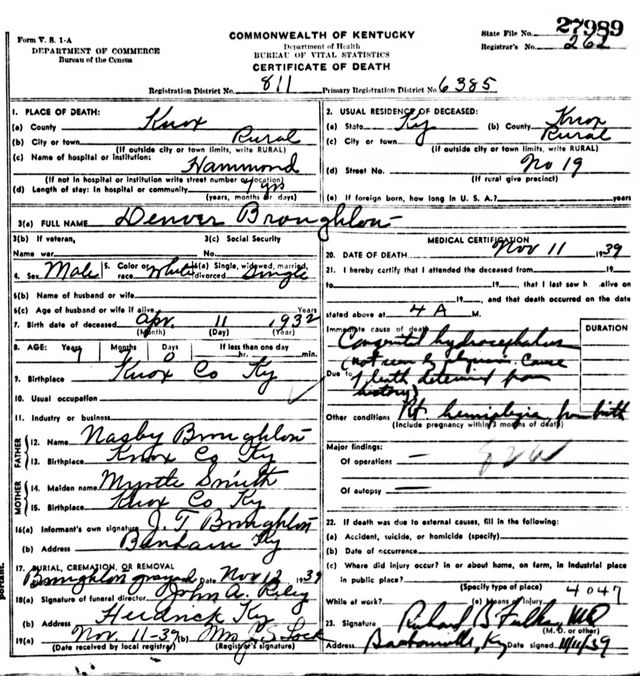 Form V. S. 1-A
DEPARTMENT OF COMMERCE
Bureau of the Census
COMMONWEALTH OF KENTUCKY
Department of Health
BUREAU OF VITAL STATISTICS
CERTIFICATE OF DEATH
State File No. 27989
Registrar's No. 262
Registration District No. 811 Primary Registration District No. 6385
1. PLACE OF DEATH:
(a) County Knox
(b) City or town Rural
(If outside city or town limits, write RURAL)
(c) Name of hospital or institution:
Hammond
(If not in hospital or institution write street number or location)
(d) Length of stay: In hospital or community 7 yrs
(years, months or days)
2. USUAL RESIDENCE OF DECEASED:
(a) State Ky (b) County Knox
(c) City or town Rural
(If outside city or town limits, write RURAL)
(d) Street No. No 19
(If rural give precinct)
(e) If foreign born, how long in U. S. A.? years
3(a) FULL NAME Denver Broughton
3(b) If veteran, 3(c) Social Security
Name war No.
4. Sex Male 5. Color or race White 6(a) Single, widowed, married, divorced Single
6(b) Name of husband or wife
6(c) Age of husband or wife if alive Years
7. Birth date of deceased Apr. 11 1932
(Month) (Day) (Year)
8. AGE: Years Months Days If less than one day
0 hr. min.
9. Birthplace Knox Co Ky
10. Usual occupation
11. Industry or business
FATHER
12. Name Nasby Broughton
13. Birthplace Knox Co Ky
MOTHER
14. Maiden name Myrtle Smith
15. Birthplace Knox Co Ky
16(a) Informant's own signature J. T. Broughton
(b) Address Benham Ky
17. BURIAL, CREMATION, OR REMOVAL
Broughton graveyard Date Nov 12 1939
18(a) Signature of funeral director John A. Riley
(b) Address Heidrick Ky
19(a) Nov. 11-39 (b) Mrs
(Date received by local registrar) (Registrar's signature)
MEDICAL CERTIFICATION
20. DATE OF DEATH Nov 11 1939
21. I hereby certify that I attended the deceased from 19
to 19, that I last saw h alive on
19, and that death occurred on the date
stated above at 4 A M.
Immediate cause of death DURATION
Congenital hydrocephalus
(not seen by physician. Cause
Due to of death determined from
history)
Other conditions Rt. hemiplegia from birth
(Include pregnancy within 3 months of death)
Major findings:
Of operations —
Of autopsy —
22. If death was due to external causes, fill in the following:
(a) Accident, suicide, or homicide (specify)
(b) Date of occurrence
(c) Where did injury occur? in or about home, on farm, in industrial place
in public place?
(Specify type of place)
4047
While at work? (e) Means of injury
23. Signature Richard B Fulks, MD
(M. D. or other)
Address Barbourville, Ky Date signed 11/11/39
portant.